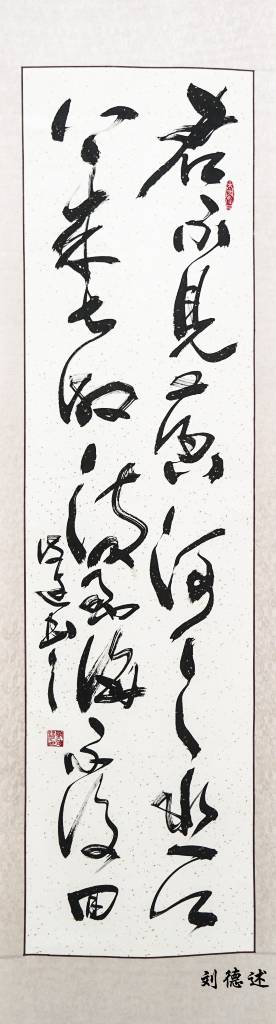 君不見黄河之水天
上来奔流到海不復回
刘德述